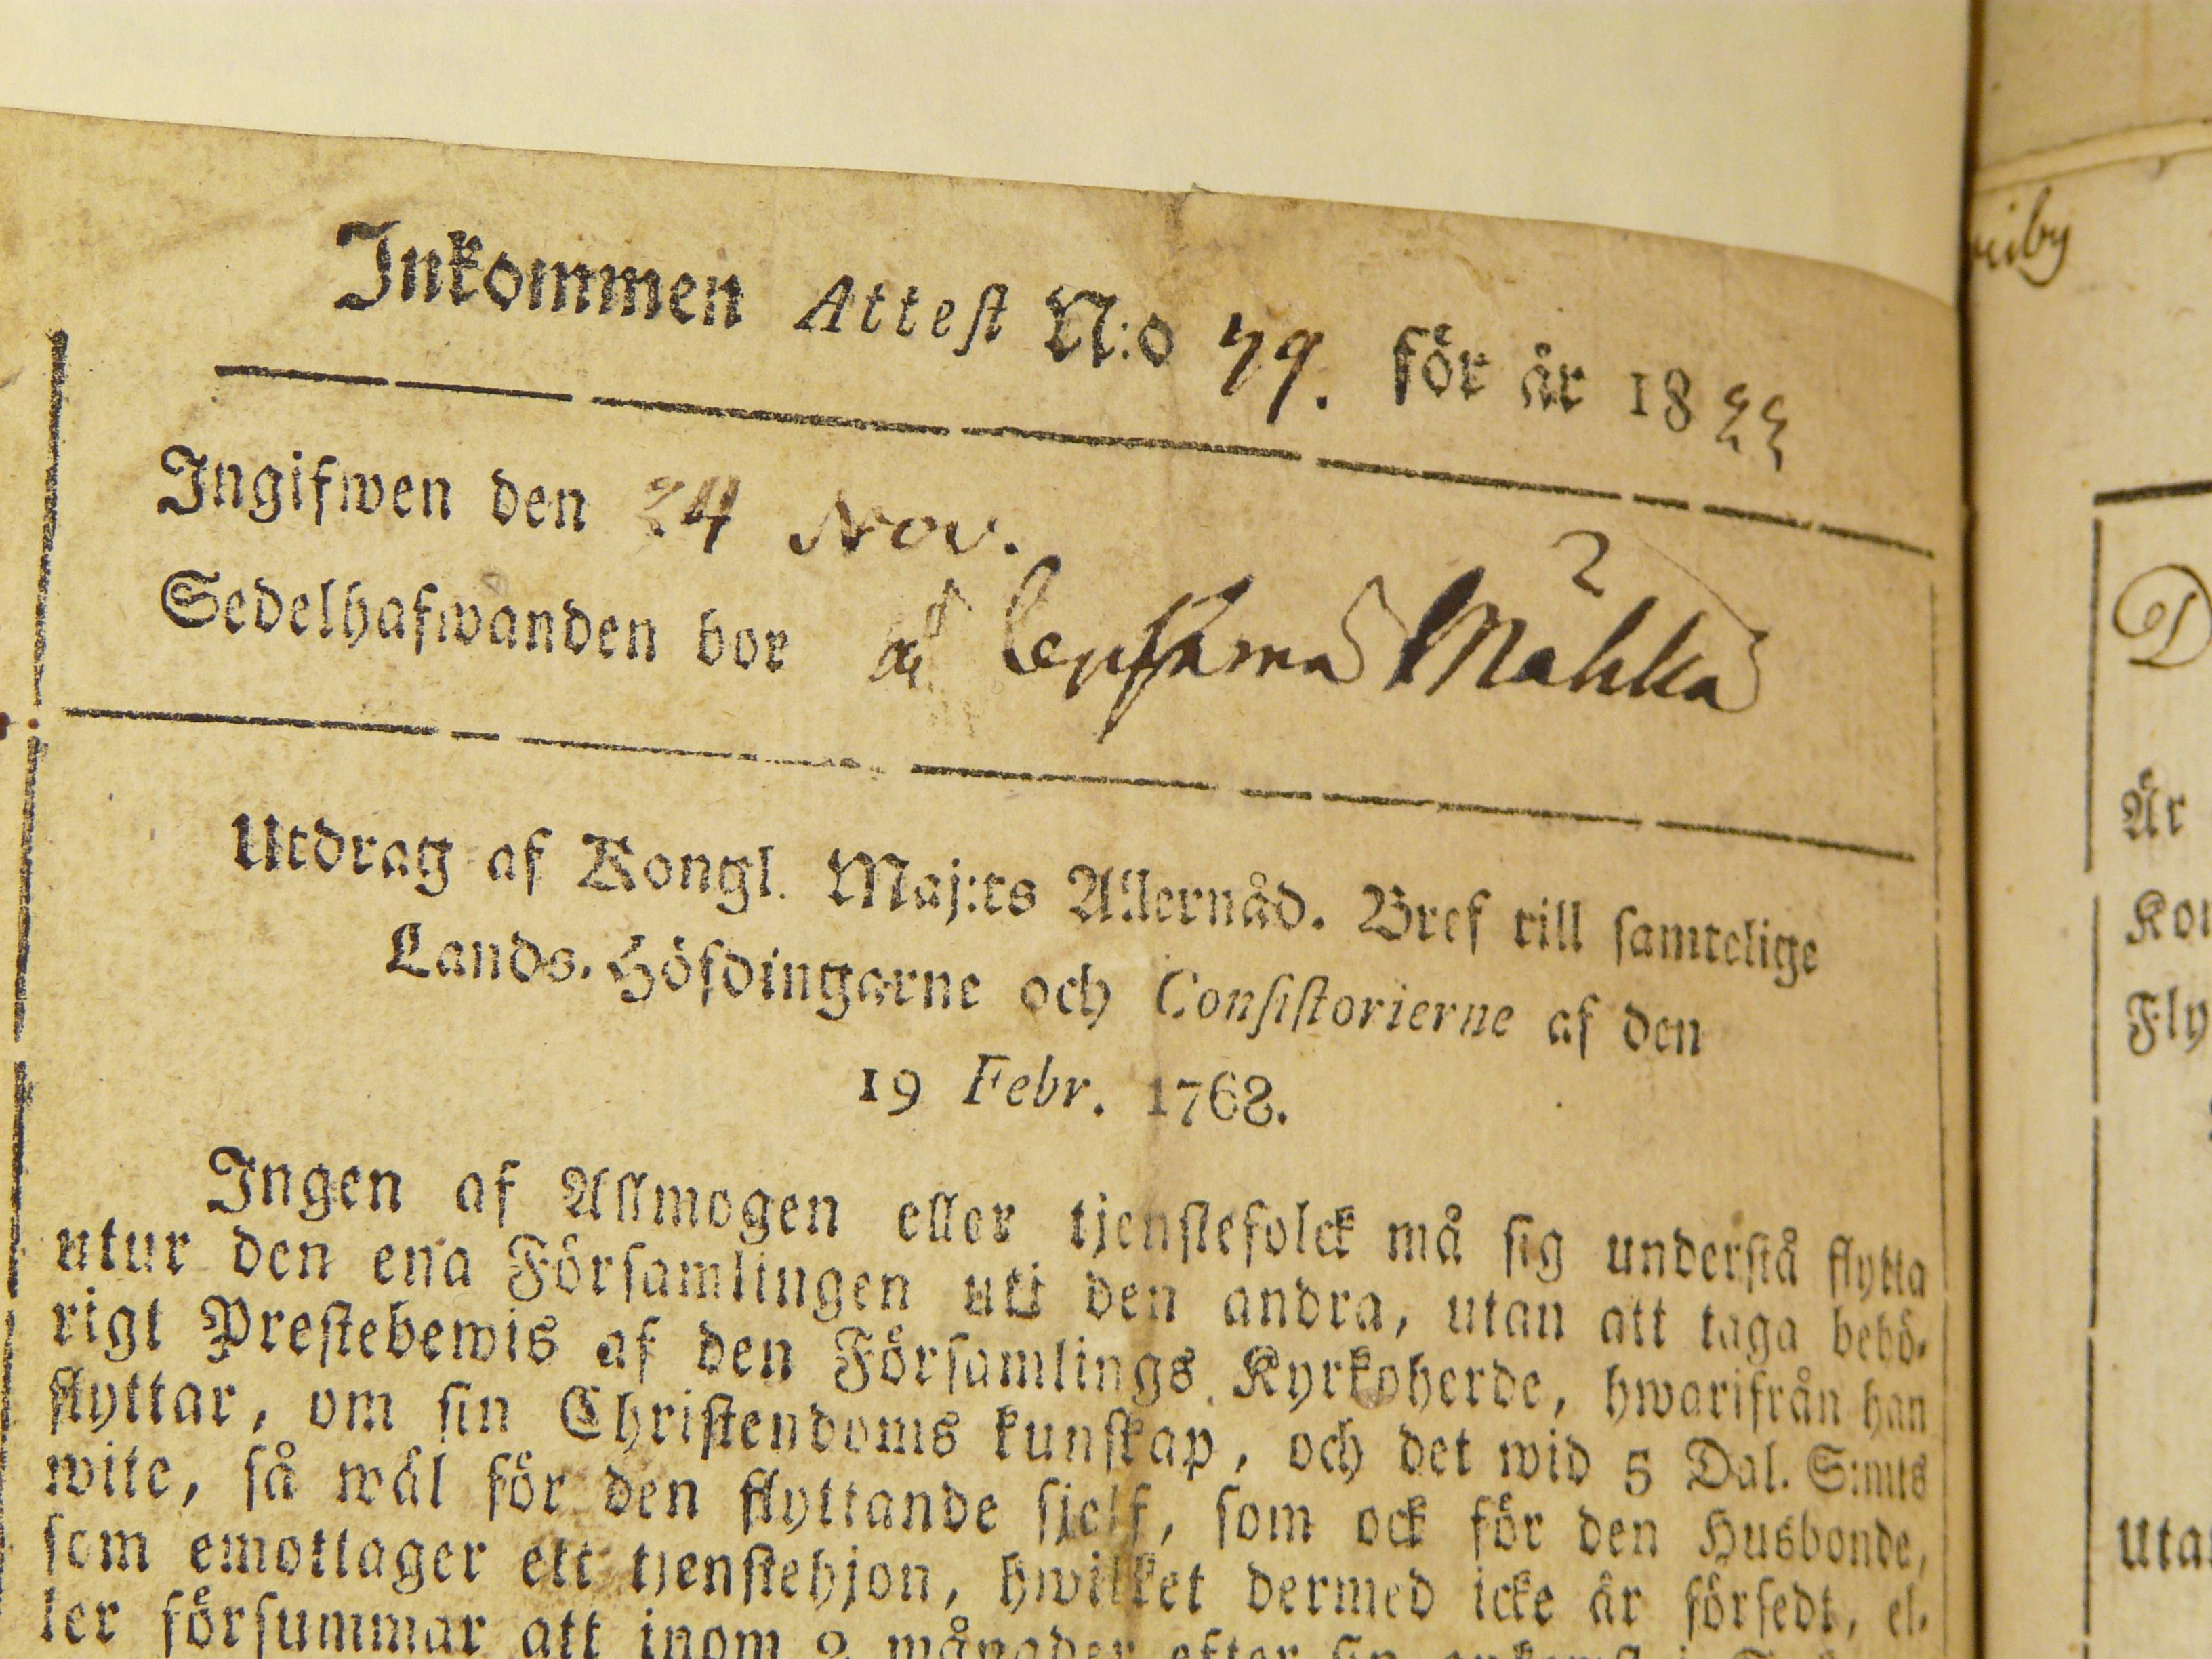 Inkommen Attest N:o 79. för år 18
Ingifwen den 24 Nov.
Sedelhafwanden bor
Utdrag af Kongl. Maj:ts Allernåd. Bref till samtelige
Lands-Höfdingarne och Consistorierne af den
19 Febr. 1768.
Ingen af Allmogen eller tjenstefolck må sig understå flytta
utur den ena Församlingen uti den andra, utan att taga behö-
rigt Prestebewis af den Församlings Kyrkoherde, hwarifrån han
flyttar, om sin Christendoms kunskap, och det wid 5 Dal. S:mts
wite, så wäl för den flyttande sjelf, som ock för den Husbonde,
som emottager ett tjenstehjon, hwilket dermed icke är försedt, el-
ler försummar att inom 2 månader efter
by
D
Är
Kon
Fly
Utan